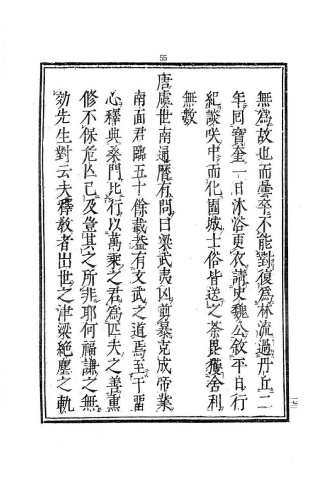 55
無爲故也而曇卒不能對復爲林流過丹丘二
年同寶奎一日沐浴更衣請史魏公敘平日行
紀談咲中而化圍城士俗皆送之荼毘獲舍利
無數
唐虞世南通曆有問曰梁武夷凶剪暴克成帝業
南面君臨五十餘載葢有文武之道焉至于畱
心釋典桑門比行以萬乘之君爲匹夫之善薰
修不保危亾已及豈其之所非耶何福謙之無
効先生對云夫釋敎者出世之津梁絶塵之軌